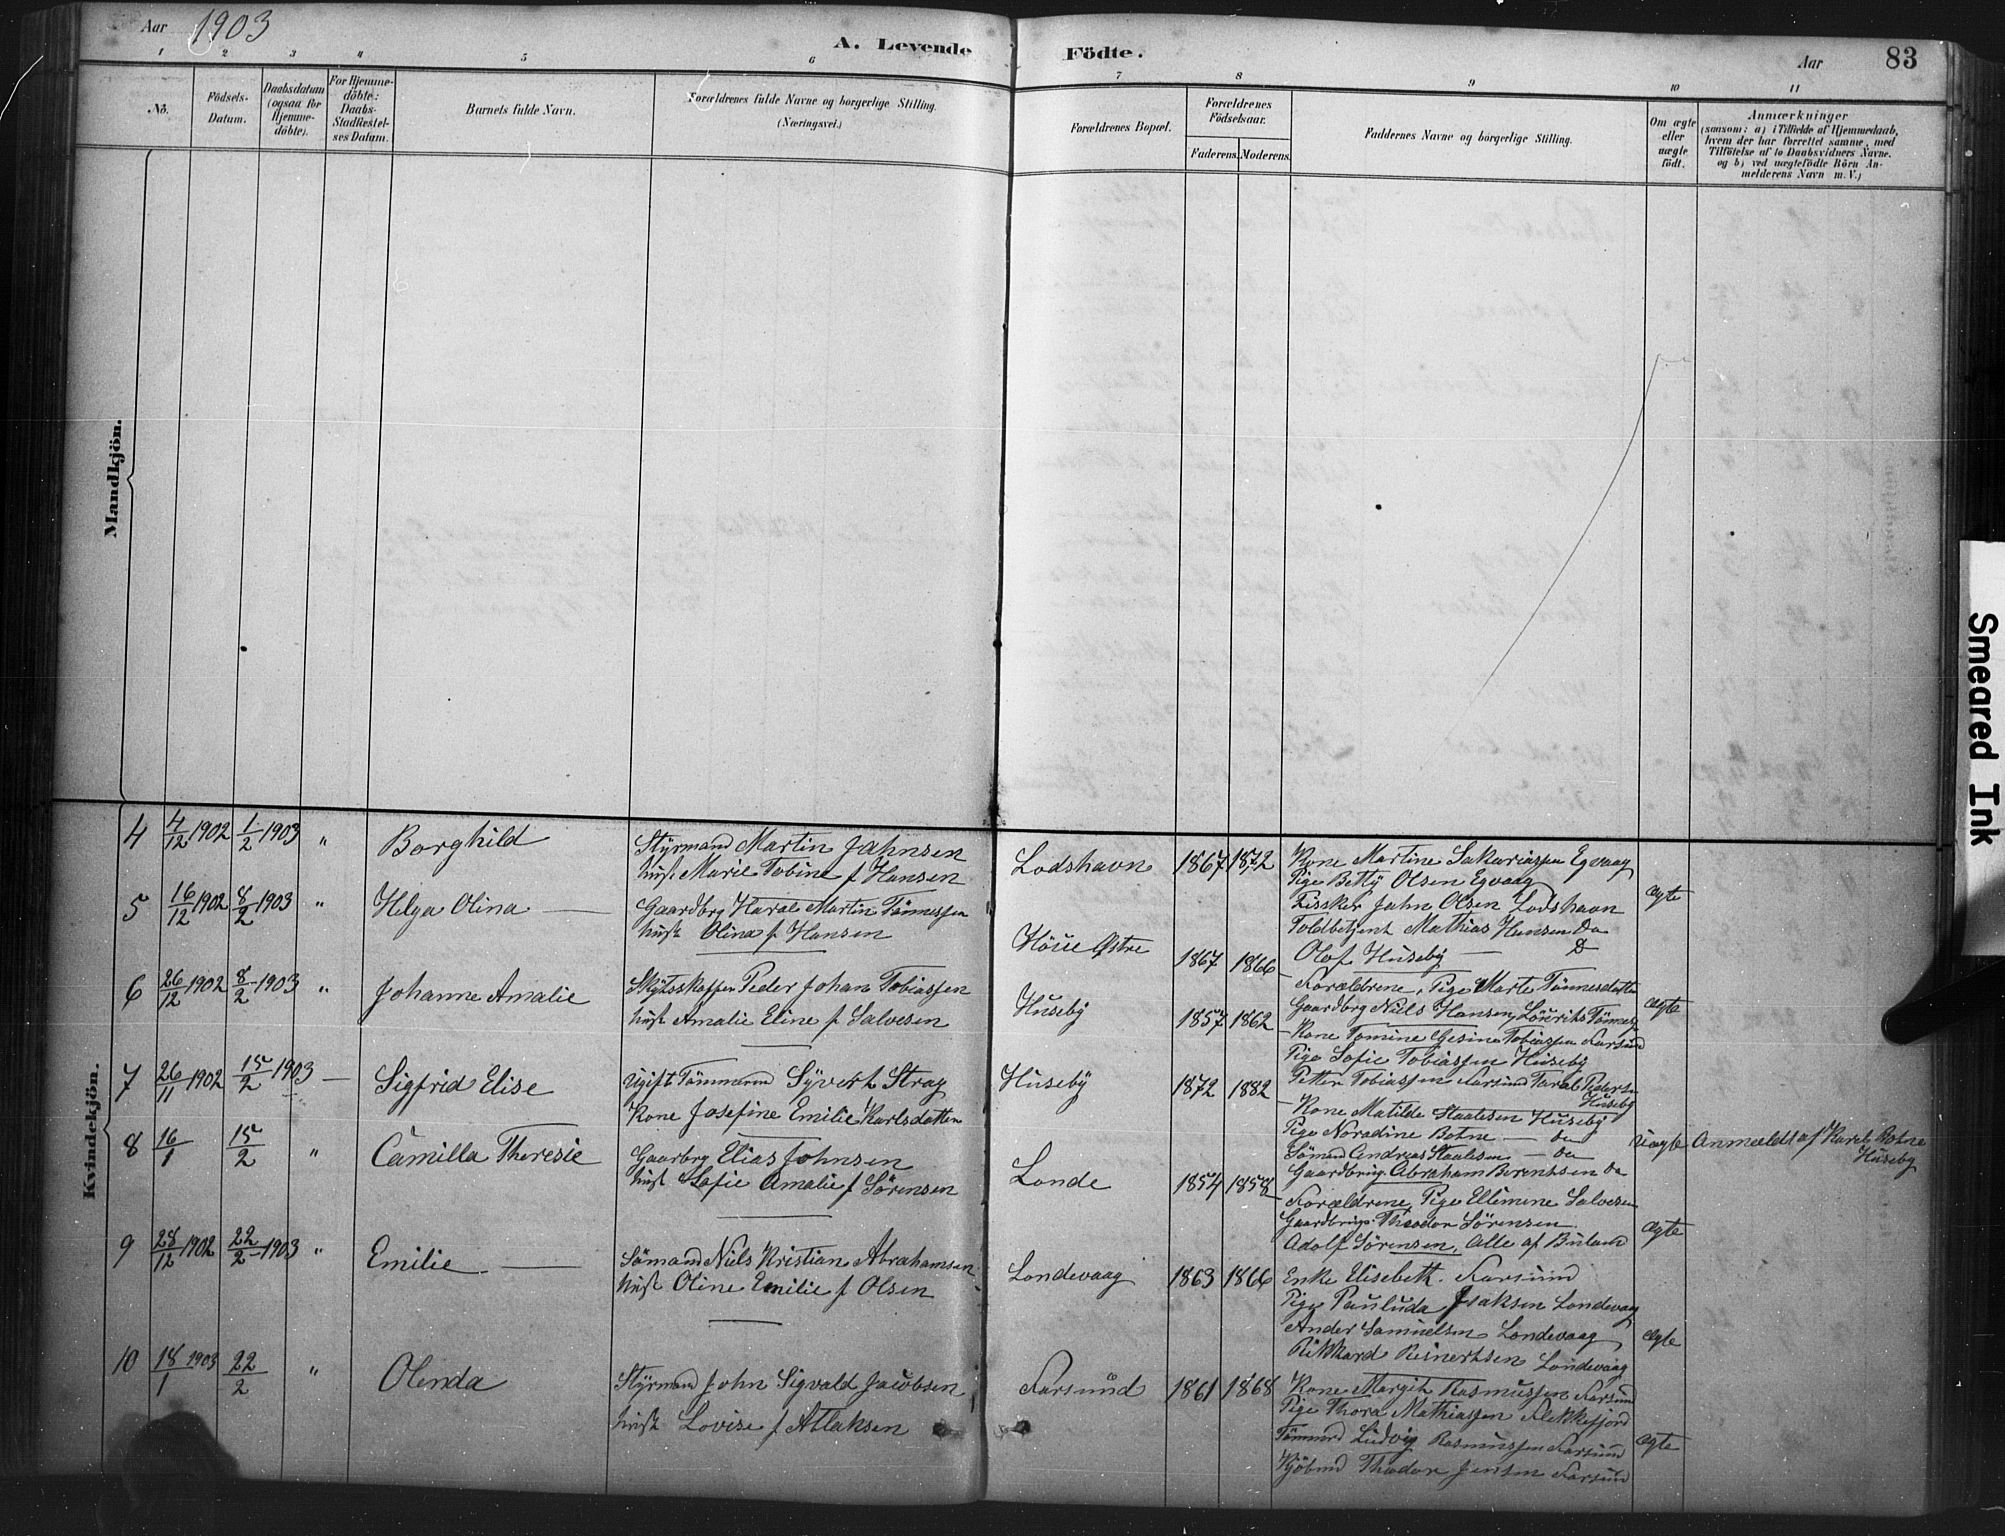 Aar 1903
A. Levende Födte.
Aar
83
1 2 3 4 5 6 7 8 9 10 11
No.
Födsels-
Datum.
Daabsdatum
(ogsaa for
Hjemme-
döbte).
For Hjemme-
döbte:
Daabs-
Stadfæstel-
ses Datum.
Barnets fulde Navn.
Forældrenes fulde Navne og borgerlige Stilling.
(Næringsvei.)
Forældrenes Bopæl.
Forældrenes
Födselsaar.
Faderens. Moderens.
Faddernes Navne og borgerlige Stilling.
Om ægte
eller
uægte
födt.
Anmærkninger
(saasom: a) i Tilfælde af Hjemmedaab,
hvem der har forrettet samme, med
Tilföielse af to Daabsvidners Navne.
og b) ved uægtefödte Börn An-
melderens Navn m. V.)
Mandkjön.
Kvindekjön.
4 4/12 1902 1/2 1903 " Borghild
Styrmand Martin Jahnsen
hust Marie Tobine f Hansen
Lodshavn 1867 1872
Kone Martine Sakariassen Egvaag
Pige Betty Olsen Egvaag
Fissker Jahn Olsen Lodshavn
Toldbetjent Mathias Hansen Do
Olaf Huseby — D
ægte
5 16/12 1902 8/2 1903 " Helga Olina —
Gaardbrg Haral Martin Tönnessen
hust Olina f Hansen
Höue Östre 1867 1866
Forældrene, Pige Marte Tönnesdatter
Gaardbrg Niels Hansen, Lourits Tönnes
ægte
6 26/12 1902 8/2 1903 " Johanne Amalie
Skytsskaffer Peder Johan Tobiassen
hust Amalie Eline f Salvesen
Huseby 1857 1862
Kone Tomine Gesine Tobiassen Farsund
Pige Sofie Tobiassen Huseby
Petter Tobiassen Farsund Taral Peders
Huseby
7 26/11 1902 15/2 1903 — Sigfrid Elise
Ugift Tömmerm Syvert Stray
Kone Josefine Emilie Karlsdatter
Huseby 1872 1882
Kone Matilde Staalesen Huseby
Pige Noradine Botne — do
Sömand Andreas Staalesen — do
Gaardbrug Abraham Berentsen Do
Uægte Anmældt af Karl Botne
Huseby
8 16/1 15/2 " Camilla Theresie
Gaarbrg Elias Johnsen
hust Sofie Amalie f Sörensen
Londe 1854 1858
Forældrene, Pige Ellemine Salvesen
Gaardbrug. Theodor Sörensen
Adolf Sörensen, Alle af Buland
ægte
9 28/12 1902 22/2 1903 " Emilie —
Sömand Niels Kristian Abrahamsen
hust Oline Emilie f Olsen
Londevaag 1863 1866
Enke Elisebeth Farsund
Pige Pauluda Isaksen Londevaag
Ander Samuelsen Londevaag
Rikkard Reinertsen Londevaag
ægte
10 18/1 1903 22/2 " Olenda
Styrmand John Sigvald Jacobsen
hust Lovise f Atlaksen
Farsund 1861 1868
Kone Margit Rasmussen Farsund
Pige Thora Mathiassen Flekkefjord
Tömmrd Ludvig Rasmussen Farsund
Kjöbmd Theodor Jensen Farsund
ægte
Smeared Ink